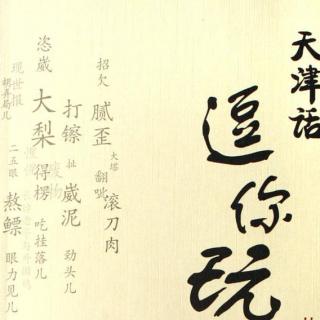 天津话
逗你玩
招欠
腻歪
大塔
翻呲
滚刀肉
打镲
扯
崴泥
劲头儿
恣崴
大梨
得楞
吃挂落儿
现世报
胡弄局儿
二五眼
熬鳔
眼力见儿